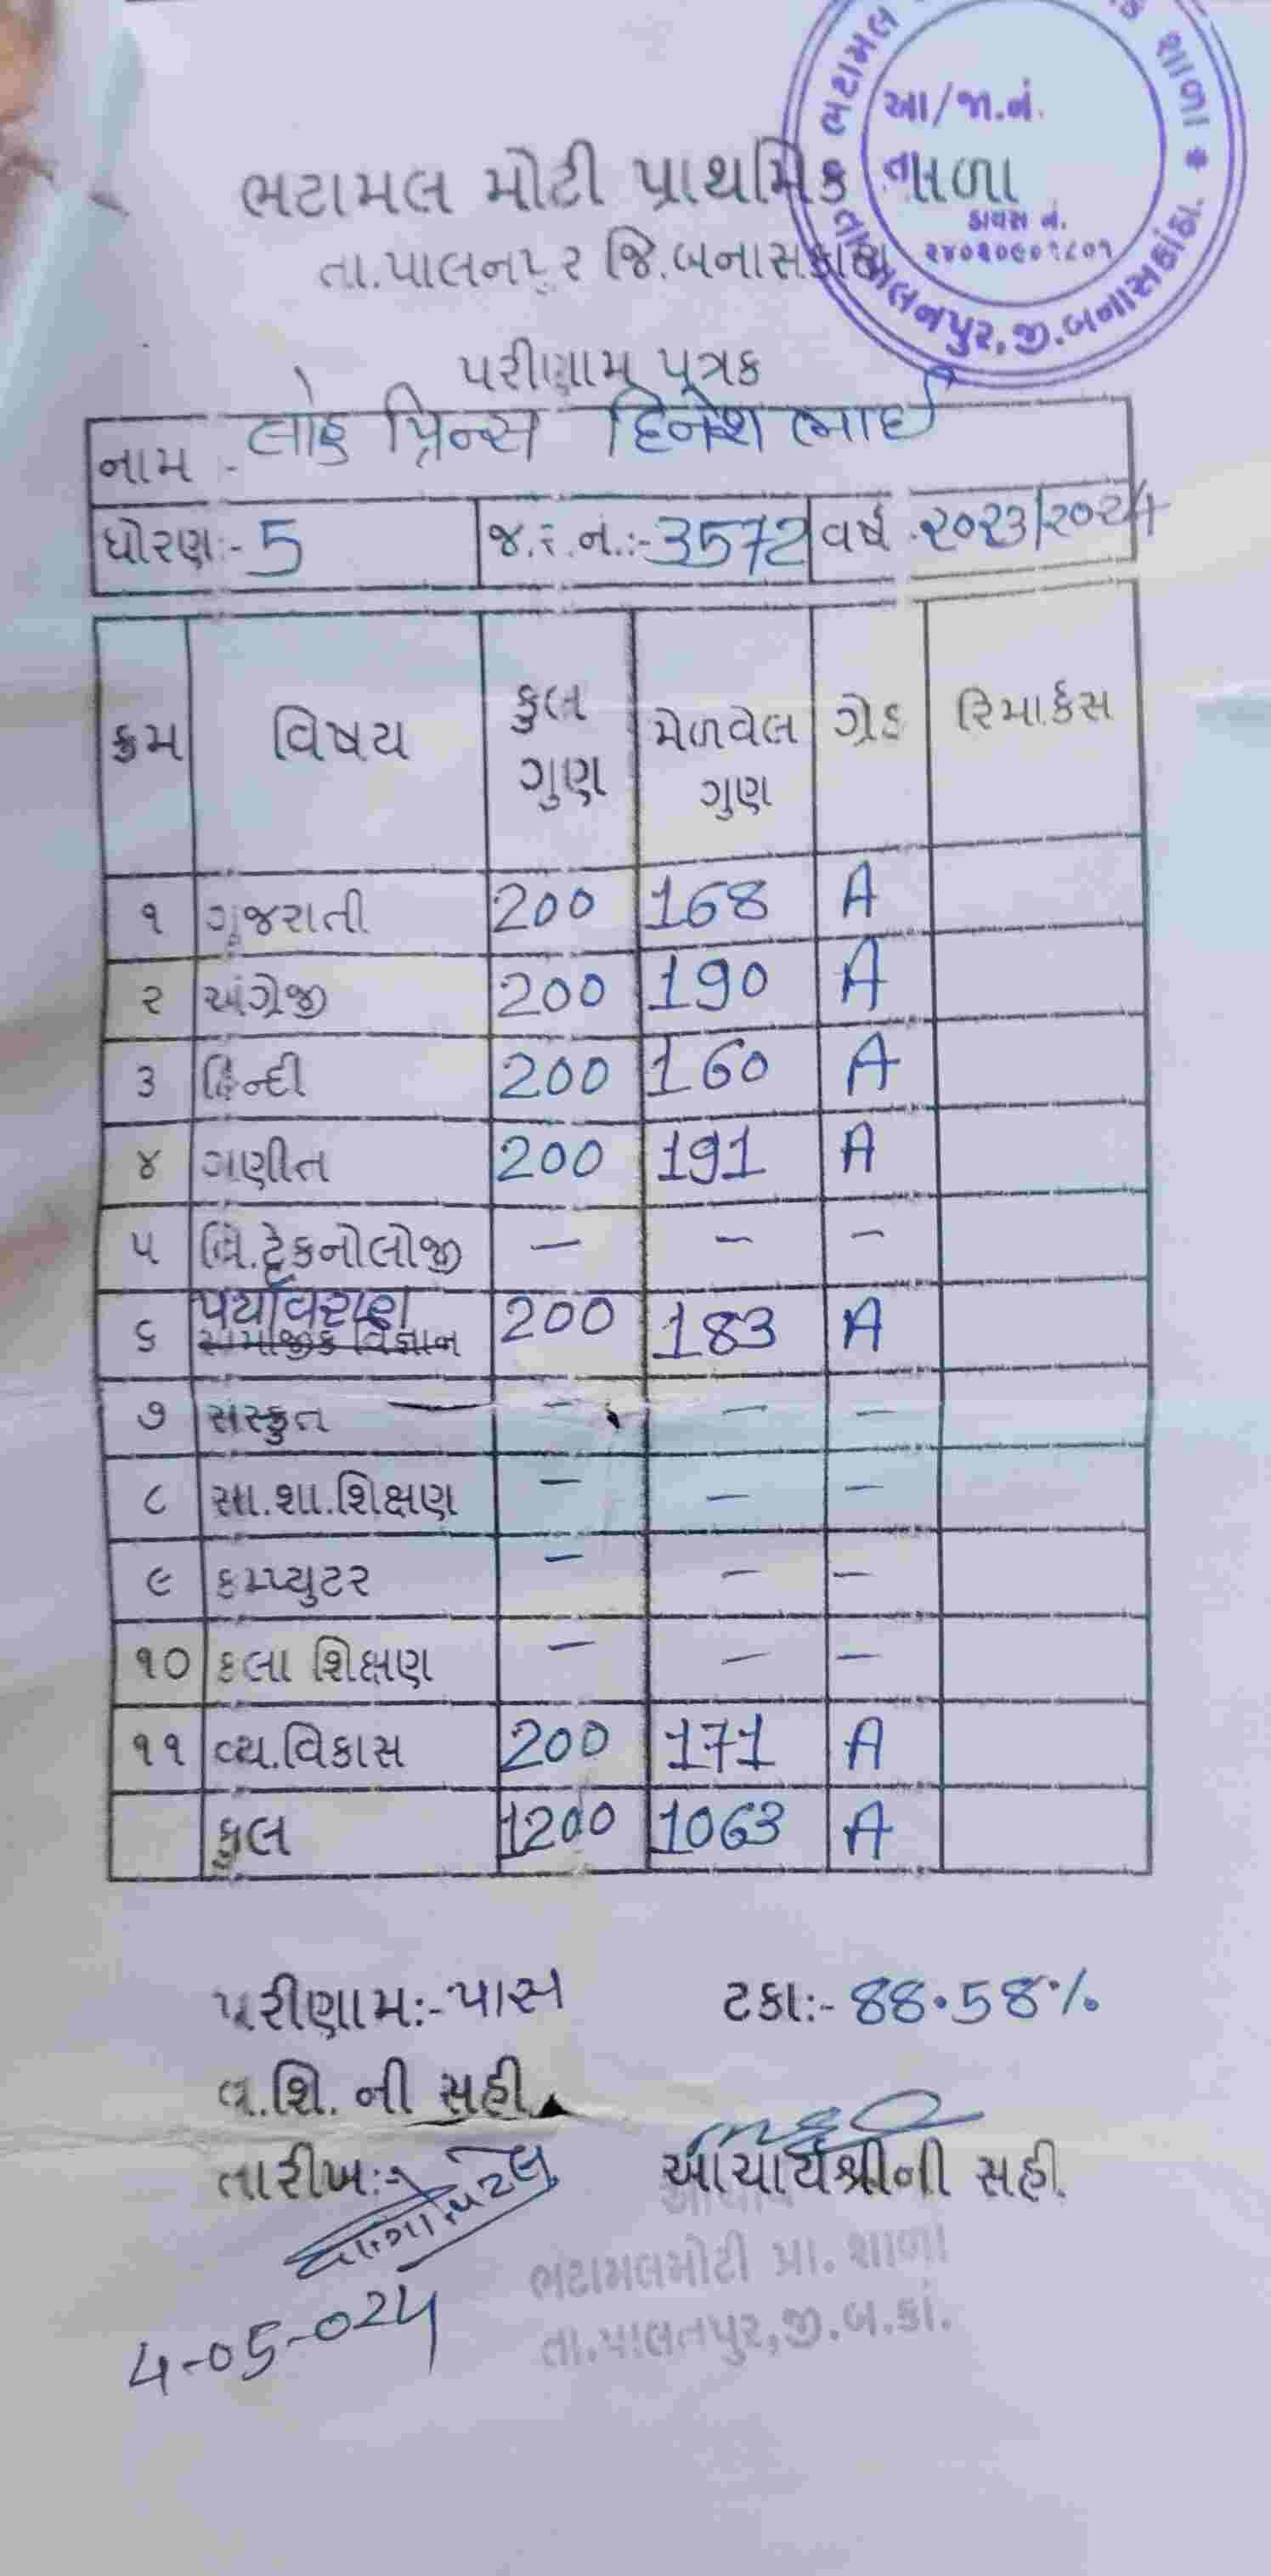 ભટામલ મોટી પ્રાથમિક શાળા
તા.પાલનપુર જિ.બનાસકાંઠા
આ/જા.નં.
તા.
ડાયસ નં.
તા.પાલનપુર,જી.બનાસકાંઠા.
પરીણામ પત્રક
નામ :- લોહ પ્રિન્સ દિનેશભાઈ
ધોરણ:- 5 જ.ર.નં.:- 3572 વર્ષ :૨૦૨૩/૨૦૨૪
ક્રમ વિષય કુલ ગુણ મેળવેલ ગુણ ગ્રેડ રિમાર્કસ
૧ ગુજરાતી 200 168 A
૨ અંગ્રેજી 200 190 A
૩ હિન્દી 200 160 A
૪ ગણીત 200 191 A
૫ વિ.ટેકનોલોજી — – –
પર્યાવરણ
૬ સામાજીક વિજ્ઞાન 200 183 A
૭ સંસ્કૃત — – – –
૮ સા.શા.શિક્ષણ – – –
૯ કમ્પ્યુટર – – –
૧૦ કલા શિક્ષણ – – –
૧૧ વ્ય.વિકાસ 200 171 A
કુલ 1200 1063 A
પરીણામ:- પાસ ટકા:- 88.58%
વ.શિ. ની સહી.
તારીખ:- આચાર્યશ્રીની સહી.
4-05-024
આચાર્ય
ભટામલમોટી પ્રા. શાળા
તા.પાલનપુર,જી.બ.કાં.